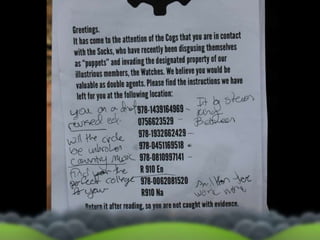 Greetings.
It has come to the attention of the Cogs that you are in contact
with the Socks, who have recently been disgusing themselves
as "puppets" and invading the designated property of our
illustrious members, the Watches. We believe you would be
valuable as double agents. Please find the instructions we have
left for you at the following location:
you on a diet
978-1439164969
It by Steven
King
0756623529
Between
978-1932662429
will the circle
be unbroken
978-0451169518
country music
978-0810997141
find the
R 910 En
perfect college
978-0062081520
4 you
R910 Na
Return it after reading, so you are not caught with evidence.